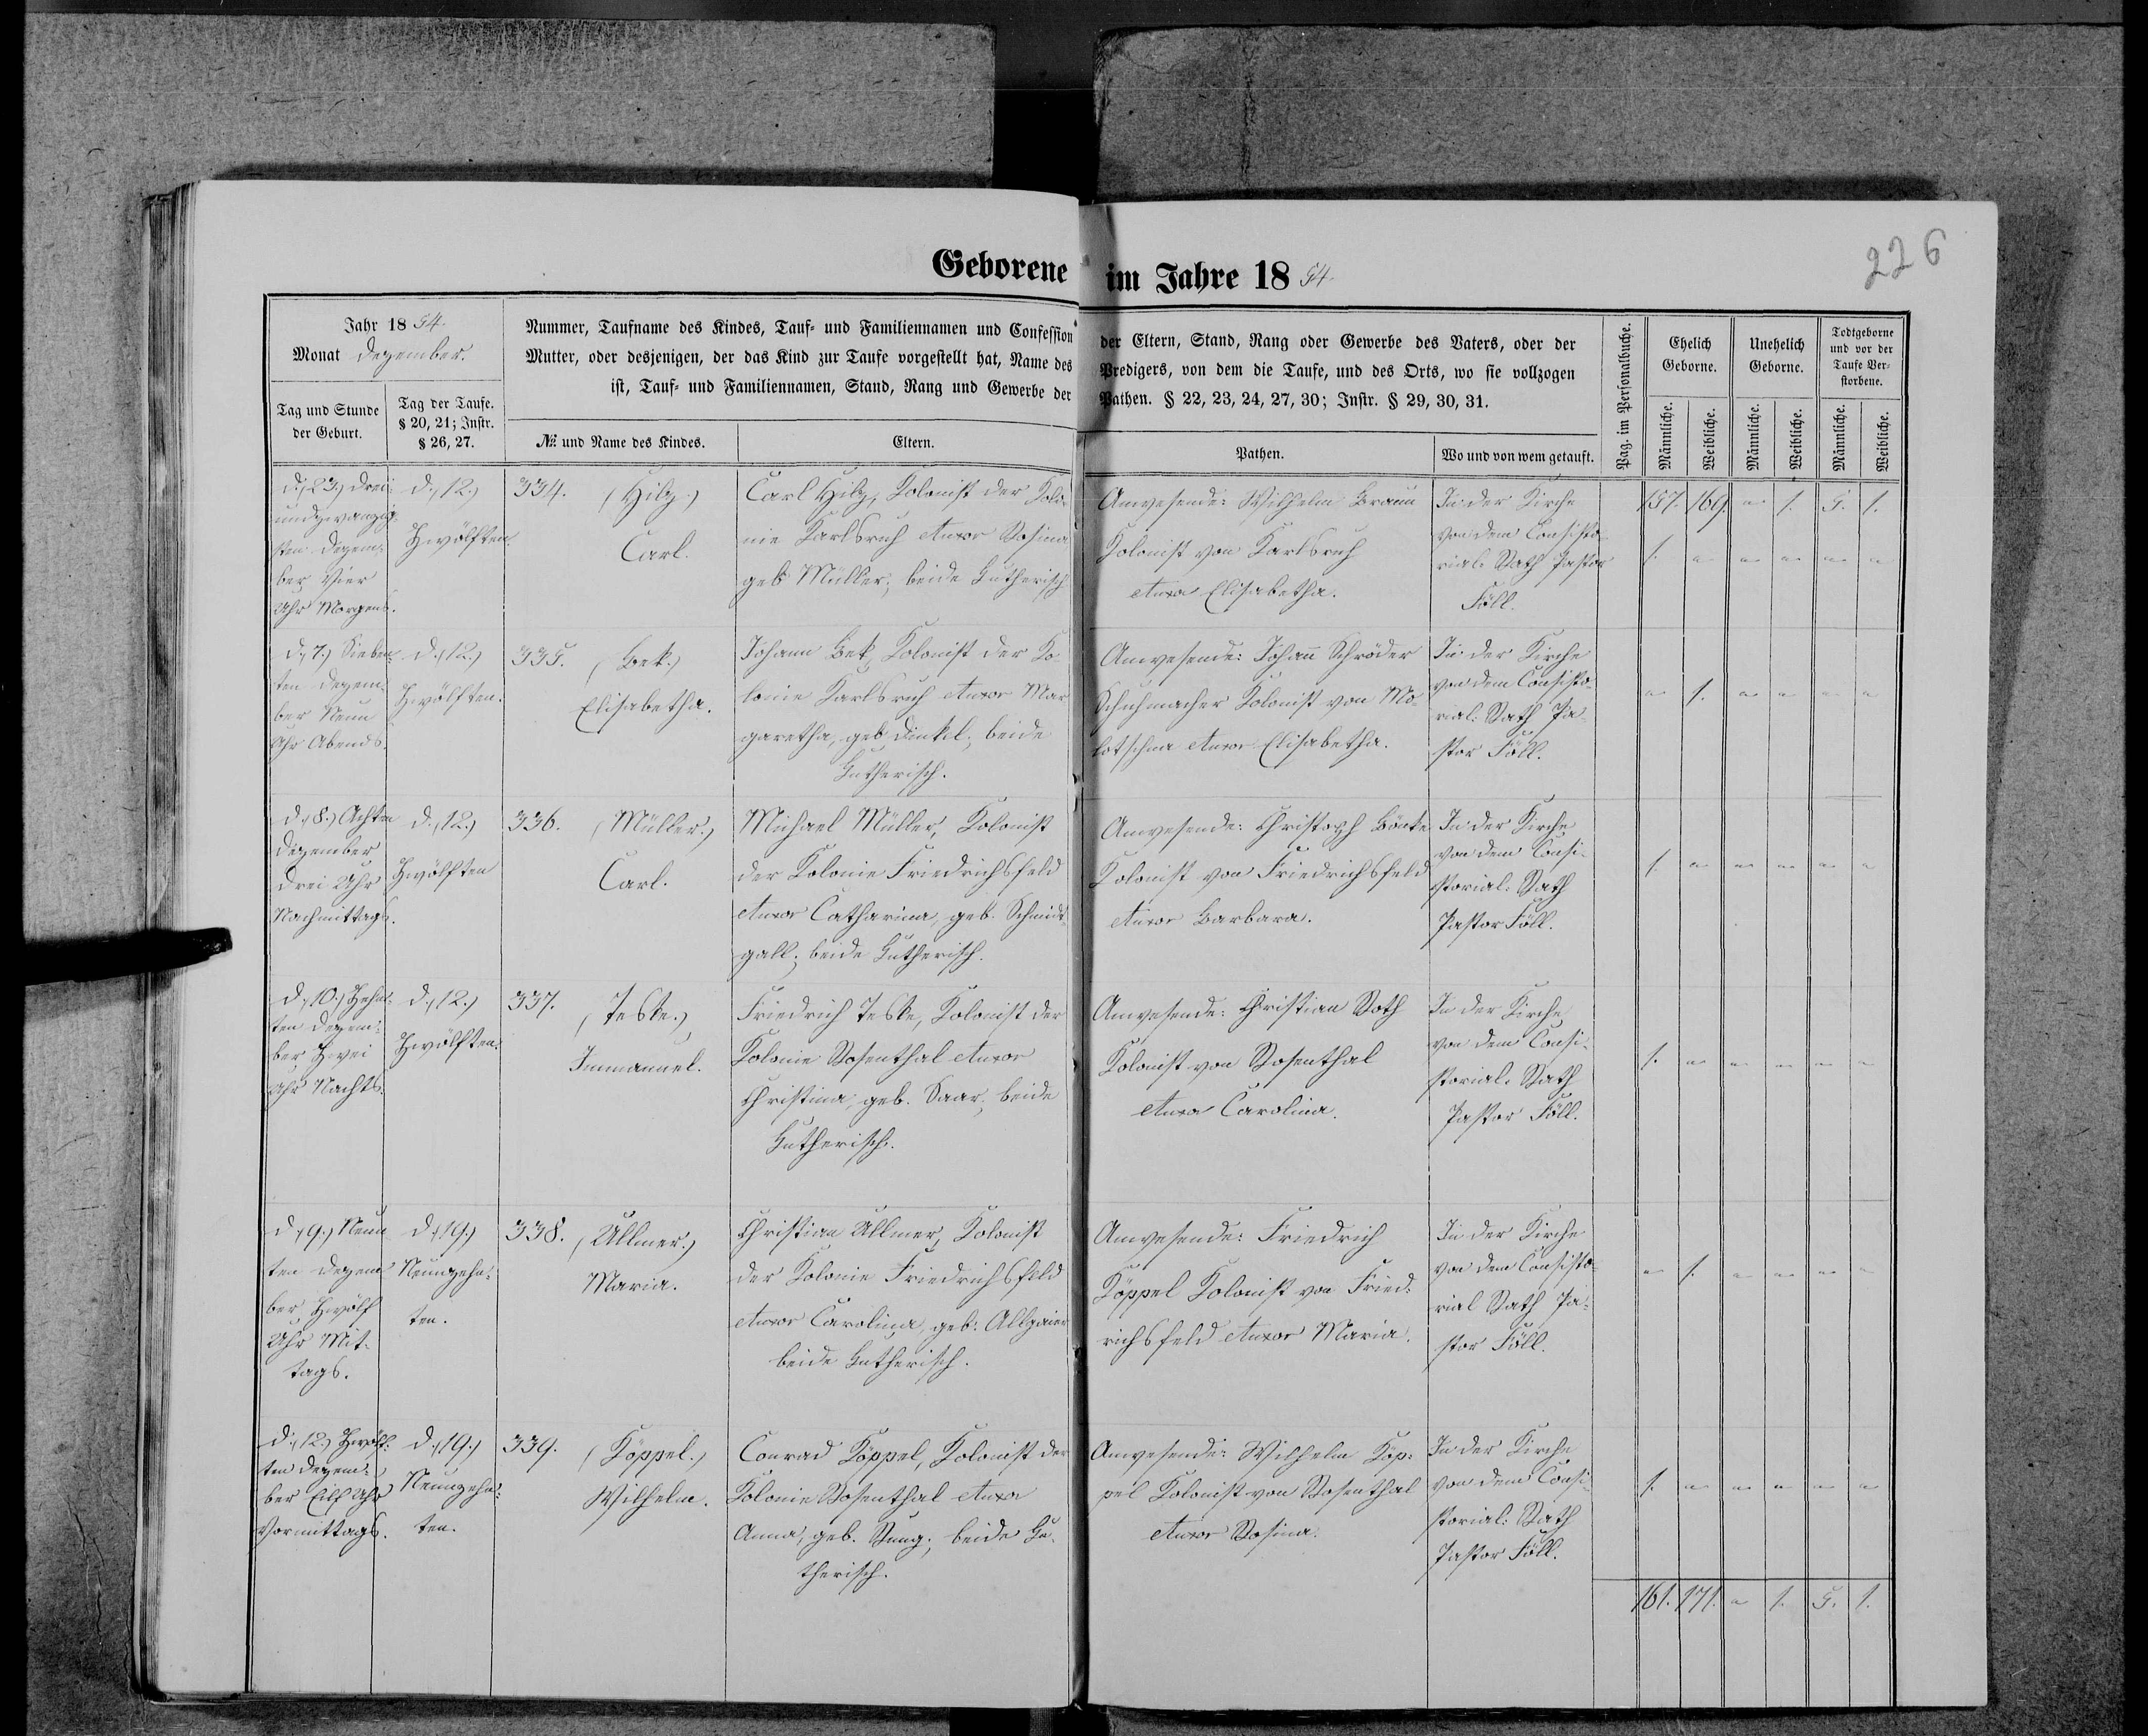 226
Geborene im Jahre 18 54.
Jahr 18 54.
Monat Dezember.
Tag und Stunde
der Geburt.
Tag der Taufe.
§ 20, 21; Instr.
§ 26, 27.
Nummer, Taufname des Kindes, Tauf- und Familiennamen und Confession der Eltern, Stand, Rang oder Gewerbe des Vaters, oder der
Mutter, oder desjenigen, der das Kind zur Taufe vorgestellt hat, Name des Predigers, von dem die Taufe, und des Orts, wo sie vollzogen
ist, Tauf- und Familiennamen, Stand, Rang und Gewerbe der Pathen. § 22, 23, 24, 27, 30; Instr. § 29, 30, 31.
№ und Name des Kindes.
Eltern.
Pathen.
Wo und von wem getauft.
Pag. im Personalbuche.
Ehelich
Geborne.
Unehelich
Geborne.
Todtgeborne
und vor der
Taufe Ver-
storbene.
Männliche.
Weibliche.
Männliche.
Weibliche.
Männliche.
Weibliche.
d. 23.) Drei-
undzwanzig-
sten Dezem-
ber Vier
Uhr Morgens.
d. 12.)
Zwölften.
334. (Hilz.)
Carl.
Carl Hilz, Kolonist der Kolo-
nie Karlsruh et Uxor Rosina
geb Müller; beide Lutherisch
Anwesende: Wilhelm Braun
Kolonist von Karlsruh
et Uxor Elisabetha.
In der Kirche
von dem Consisto-
rial. Rath Pastor
Föll.
157. 169. " 1. 5. 1.
1. " " " " "
d. 7.) Sieben-
ten Dezem-
ber Neun
Uhr Abends.
d. 12.)
Zwölften.
335. (Bek.)
Elisabetha.
Johann Bek, Kolonist der Ko-
lonie Karlsruh et Uxor Mar-
garetha, geb Dinkel; beide
Lutherisch.
Anwesende: Johann Schröder
Schuhmacher Kolonist von Mo-
lotschna et Uxor Elisabetha.
In der Kirche
von dem Consisto-
rial: Rath Pa-
stor Föll.
" 1. " " " "
d. 8.) Achten
Dezember
Drei Uhr
Nachmittags.
d. 12.)
Zwölften
336. (Müller.)
Carl.
Michael Müller, Kolonist
der Kolonie Friedrichsfeld
et Uxor Catharina, geb. Schmidt-
gall; beide Lutherisch.
Anwesende: Christoph
Kolonist von Friedrichsfeld
et Uxor Barbara.
In der Kirche
von dem Consi-
storial. Rath
Pastor Föll.
1. " " " " "
d. 10.) Zehn-
ten Dezem-
ber Zwei
Uhr Nachts.
d. 12.)
Zwölften.
337. (Teske.)
Immanuel.
Friedrich Teske, Kolonist der
Kolonie Rosenthal et Uxor
Christina, geb. Saar; beide
Lutherisch.
Anwesende: Christian Roth
Kolonist von Rosenthal
et Uxor Carolina.
In der Kirche
von dem Consi-
storial. Rath
Pastor Föll.
1. " " " " "
d. 9.) Neun
ten Dezem
ber Zwölf
Uhr Mit-
tags.
d. 19.)
Neunzehn-
ten.
338. (Ullmer.)
Maria.
Christian Ullmer, Kolonist
der Kolonie Friedrichsfeld
et Uxor Carolina, geb: Allgaier
beide Lutherisch.
Anwesende: Friedrich
Köppel Kolonist von Fried-
richsfeld et Uxor Maria.
In der Kirche
von dem Consisto-
rial Rath Pa-
stor Föll.
" 1. " " " "
d. 12.) Zwölf-
ten Dezem-
ber Eilf Uhr
Vormittags.
d. 19.)
Neunzehn-
ten.
339. (Köppel.)
Wilhelm.
Conrad Köppel, Kolonist der
Kolonie Rosenthal et Uxor
Anna, geb. Rung; beide Lu-
therisch.
Anwesende: Wilhelm Köp-
pel Kolonist von Rosenthal
et Uxor Rosina.
In der Kirche
von dem Consi-
storial: Rath
Pastor Föll.
1. " " " " "
161. 171. " 1. 5. 1.